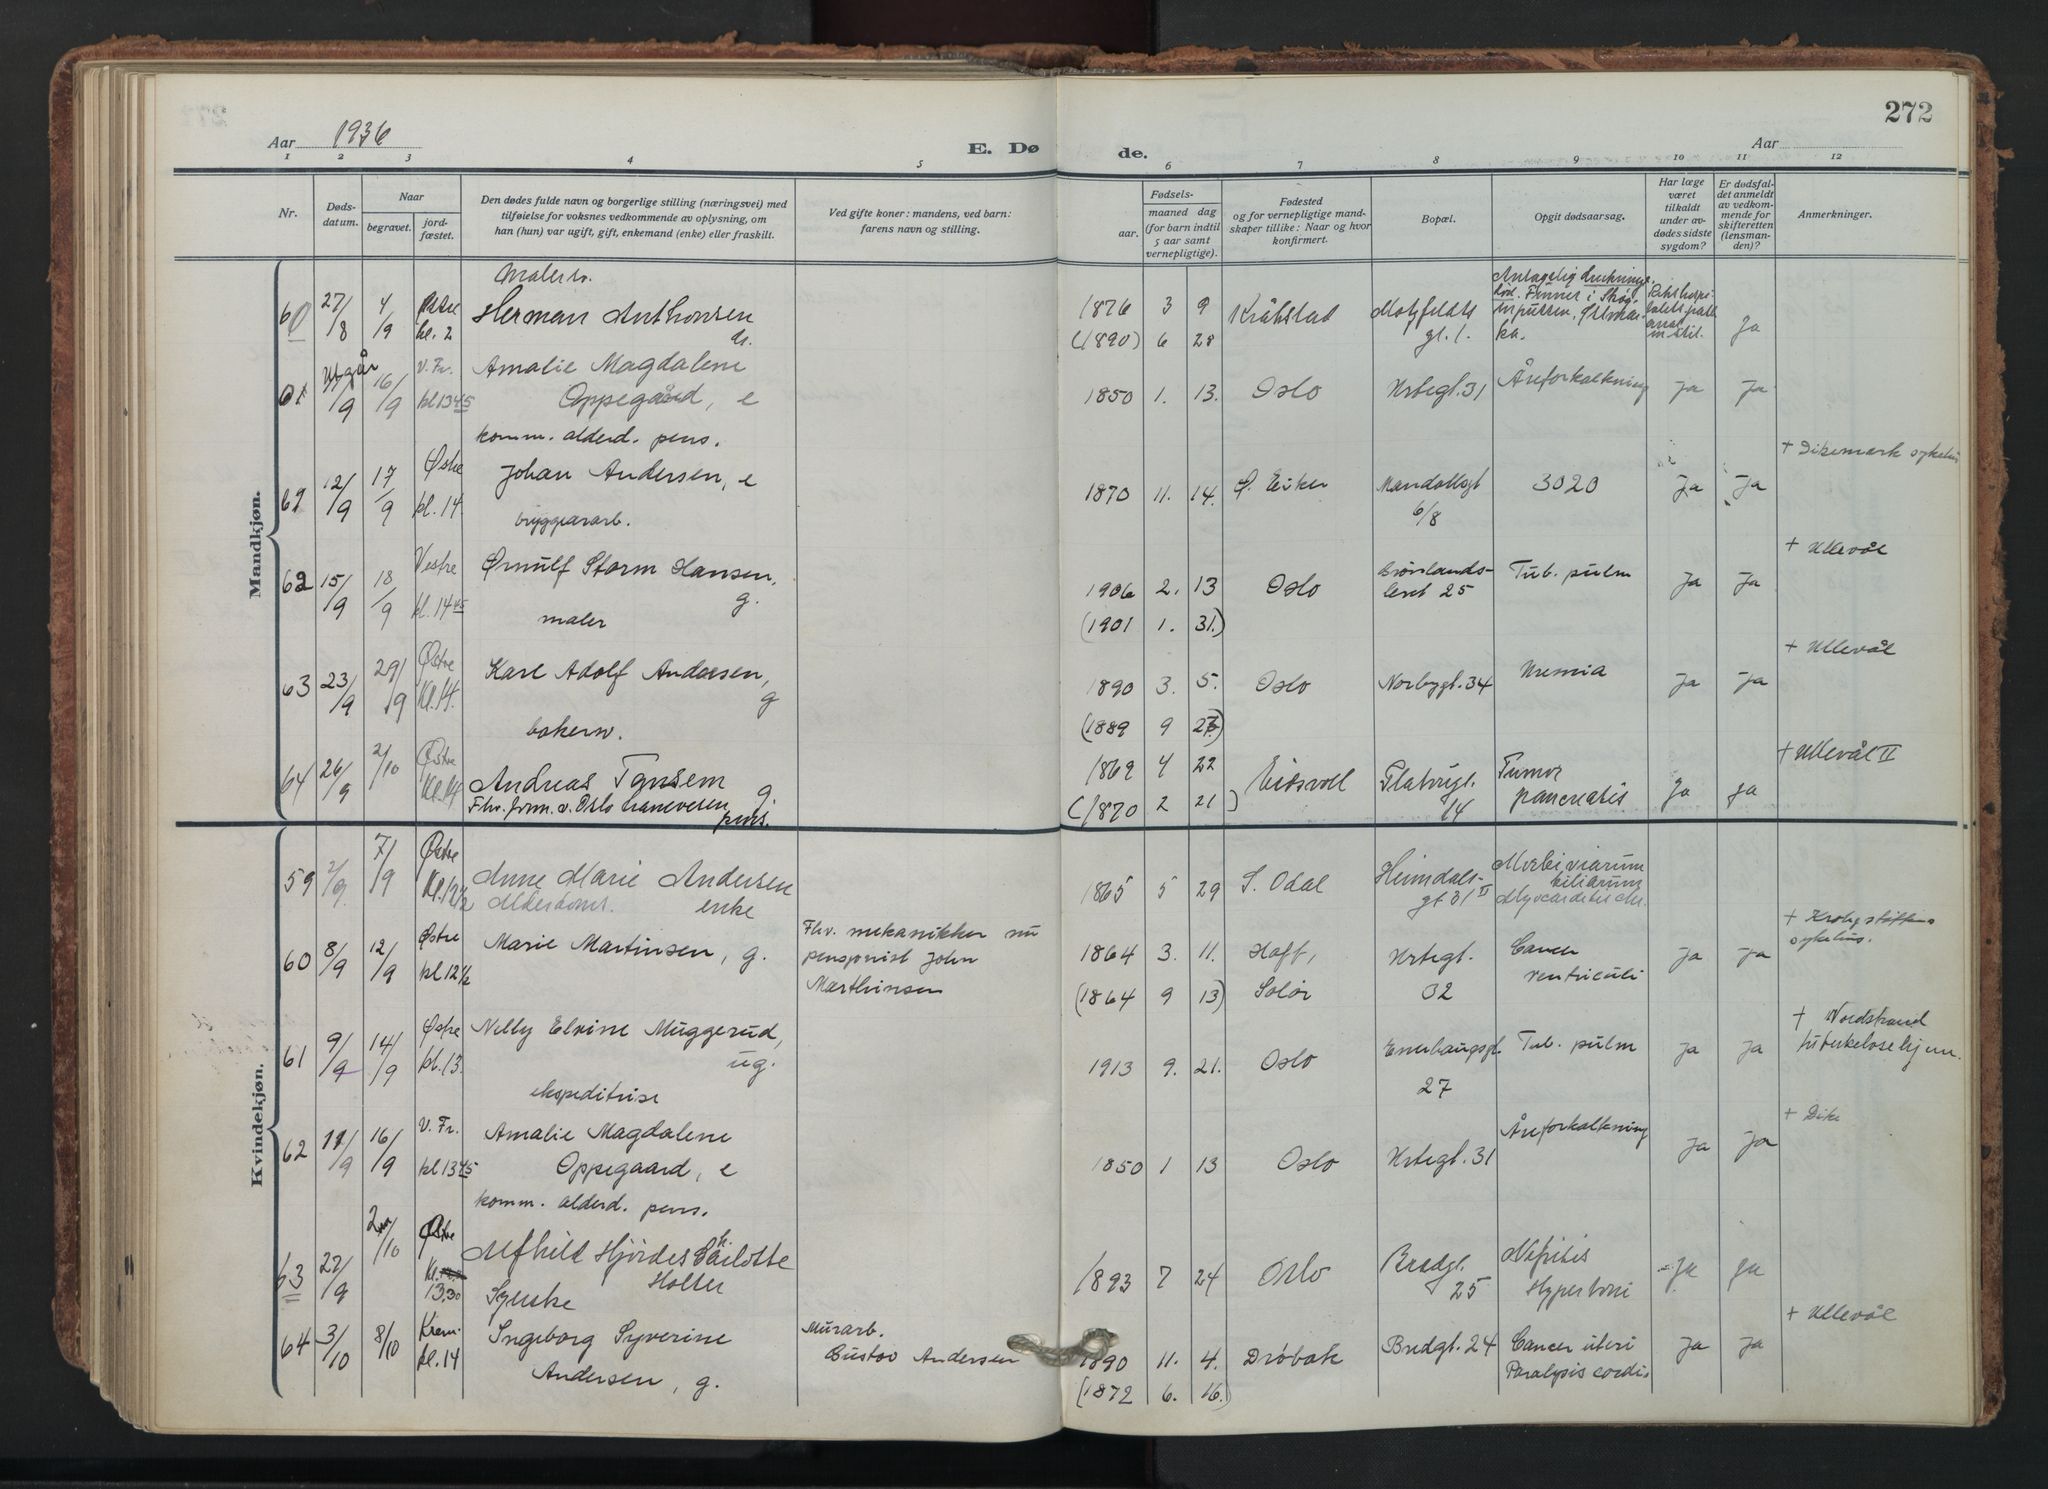 272
Aar 1936
E. Dø
de.
Aar
1 2 3 4 5 6 7 8 9 10 11 12
Nr.
Døds-
datum.
Naar
begravet.
jord-
fæstet.
Den dødes fulde navn og borgerlige stilling (næringsvei) med
tilføielse for voksnes vedkommende av oplysning, om
han (hun) var ugift, gift, enkemand (enke) eller fraskilt.
Ved gifte koner: mandens, ved barn:
farens navn og stilling.
Fødsels-
aar.
maaned dag
(for barn indtil
5 aar samt
vernepligtige).
Fødested
og for vernepligtige mand-
skaper tillike: Naar og hvor
konfirmert.
Bopæl.
Opgit dødsaarsag.
Har læge
været
tilkaldt
under av-
dødes sidste
sygdom?
Er dødsfal-
det anmeldt
av vedkom-
mende for
skifteretten
(lensman-
den)?
Anmerkninger.
Mandkjøn.
Malersv.
60 27/8 4/9 Østre kl. 2 Herman Anthonsen 1876 3 9 Kråkstad Motzfeldts gt. 1. Ja
(1890) 6 28
Antagelig druknings-
død. Funnet i Skøy-
ka.
Utgår
61 11/9 16/9 V. Fr. kl 13 45 Amalie Magdalene
Oppegaard, e 1850 1. 13. Oslo Urtegt. 31 Åreforkalkning ja ja
komm. alderd. pens.
61 12/9 17/9 Østre kl. 14. Johan Andersen, e 1870 11. 14. Ø. Eiker Mandallsgt 6/8 3020 ja ja + Dikemark sykehus
bryggeriarb.
62 15/9 18/9 Vestre kl. 14 45 Ørnulf Storm Hansen, g. 1906 2. 13 Oslo Grønlands-
leret 25 Tub. pulm ja ja + Ullevål
maler (1901 1. 31.)
63 23/9 29/9 Østre Kl. 14. Karl Adolf Andersen, g 1890 3. 5. Oslo Norbygt. 34 Uremia ja ja + Ullevål
bakersv. (1889 9 27)
64 26/9 2/10 Østre Kl. 14 Andreas Tansem g. 1869 4 22 Eidsvoll Flatbygt. 14 Tumor
pancreatis Ja ja + Ullevål II
Fhv. form. v. Oslo havnevesen pens. (1870 2 21)
Kvindekjøn.
59 2/9 7/9 Østre Kl. 12 1/2 Anne Marie Andersen 1865 5 29 S. Odal Heimdals-
gt 31 II Morbi viarum
biliarum
Alderdoms. enke Myocarditis chr.
60 8/9 12/9 Østre kl 12 1/2 Marie Martinsen, g. Fhv. mekanikker nu
pensjonist John
Marthinsen 1864 3. 11. Hoff, Urtegt. 32 Cancer
ventriculi ja ja + Krohgstøttens
sykehus.
(1864 9 13) Solør
61 9/9 14/9 Østre kl. 13. Nelly Elvine Muggerud, ug. 1913 9. 21. Oslo Enerhaugsgt. 27 Tub. pulm ja ja + Nordstrand
tuberkulosehjem.
ekspeditrise
62 11/9 16/9 V. Fr. kl 13 45 Amalie Magdalene
Oppegaard, e 1850 1 13 Oslo Urtegt. 31 Åreforkalkning ja ja + Dike
komm. alderd. pens.
63 22/9 2/10 Østre Kl. 13.30 Alfhild Hjørdes Charlotte
Holter 1893 7 24 Oslo Bredgt. 25 Nefritis
Hypertoni Ja ja
Syerske
64 3/10 8/10 Krem. kl. 14 Ingeborg Syverine
Andersen, g. Murarb.
Gustav Andersen 1890 11. 4. Drøbak Bredgt. 24 Cancer uteri
Paralysis cordis ja ja + Ullevål
(1872 6. 16.)